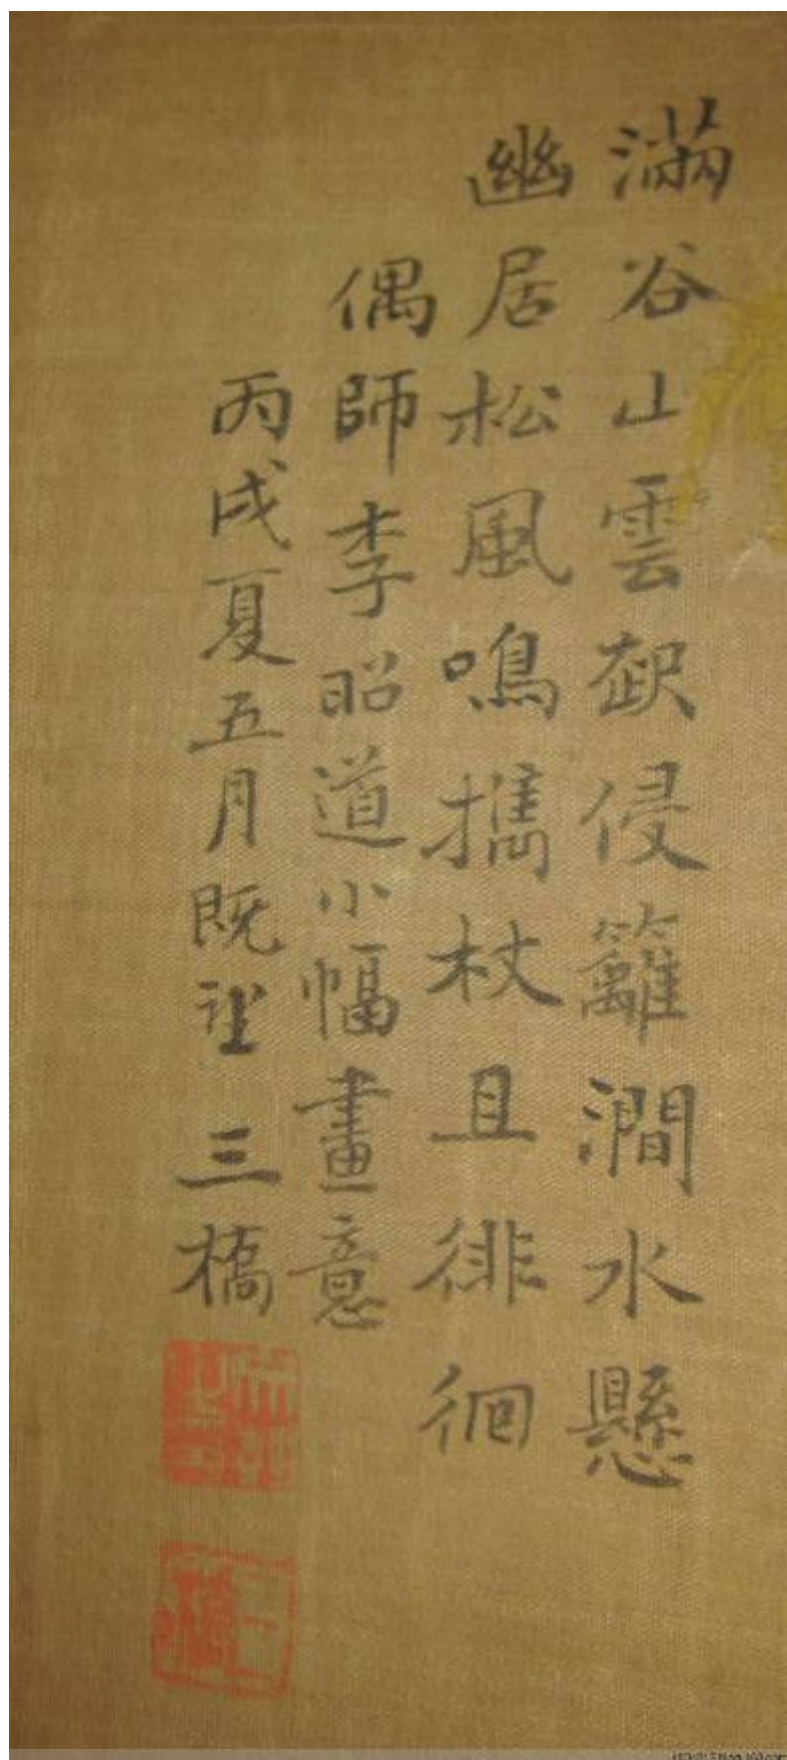 滿谷山雲欲侵籬澗水懸
幽居松風鳴攜杖且徘徊
偶師李昭道小幅畫意
丙戌夏五月既望 三橋